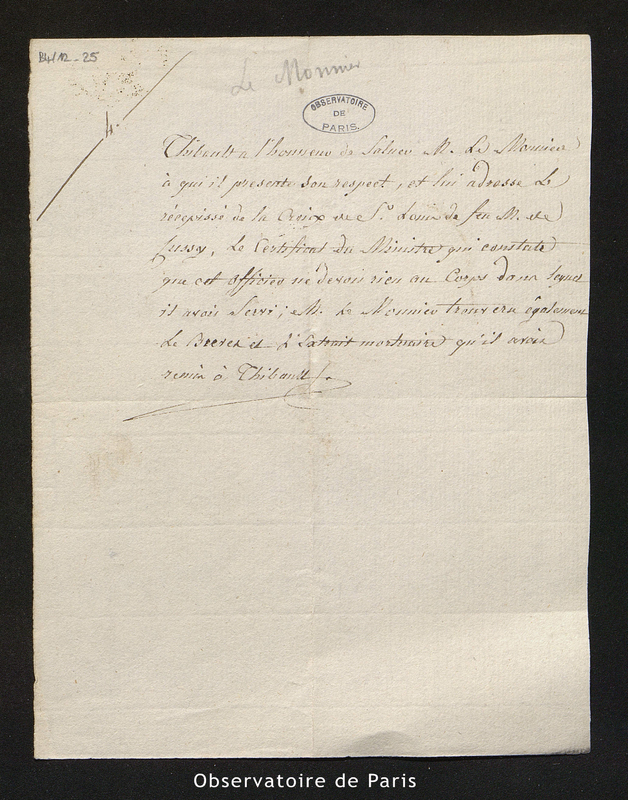 B4/12-25
Le Monnier
4.
OBSERVATOIRE
DE
PARIS
Thibault a l'honneur de Saluer M. Le Monnier
à qui il presente son respect, et lui adresse Le
récépissé de la Croix de St. Louis de feu M. de
Jussy, Le Certificat du Ministre qui constate
que cet officier ne devoit rien au Corps dans lequel
il avoit Servi; M. Le Monnier trouvera également
Le Brevet et L'Extrait mortuaire qu'il avoit
remis à Thibault
Observatoire de Paris